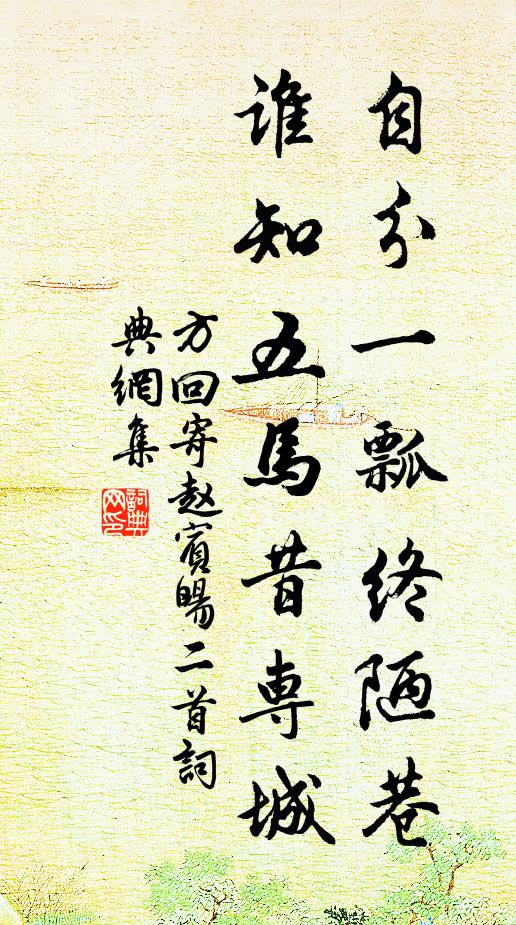 自分一瓢終陋巷
誰知五馬昔専城
方回寄赵賓暘二首詞
典網集
詞典
网印